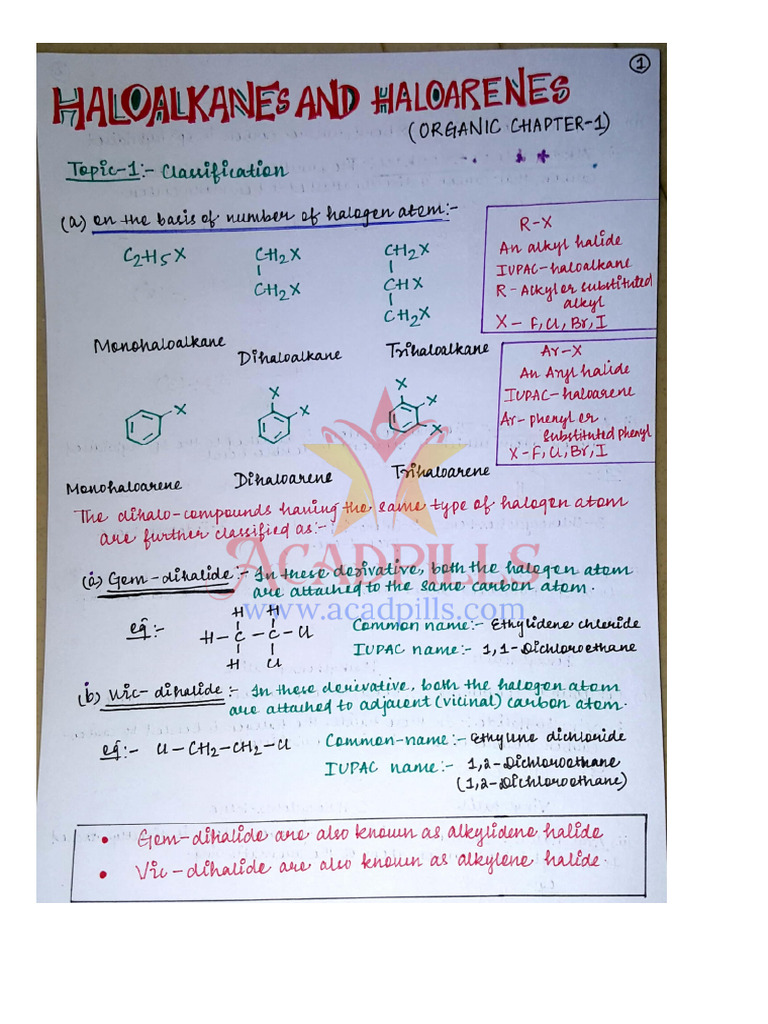 1
HALOALKANES AND HALOARENES
(ORGANIC CHAPTER-1)
Topic-1:- Classification
(a) on the basis of number of halogen atom:-
C2H5X
CH2X
CH2X
CH2X
CHX
CH2X
R-X
An alkyl halide
IUPAC-haloalkane
R-Alkyl or substituted
alkyl
X- F, Cl, Br, I
Monohaloalkane
Dihaloalkane
Trihaloalkane
X
X
X
X
X
X
Ar-X
An Aryl halide
IUPAC-haloarene
Ar- phenyl or
substituted phenyl
X-F, Cl, Br, I
Monohaloarene
Dihaloarene
Trihaloarene
The dihalo-compounds having the same type of halogen atom
are further classified as:-
ACADPILLS
www.acadpills.com
(a) Gem-dihalide:- In these derivative, both the halogen atom
are attached to the same carbon atom.
eg:-
H H
H-C-C-Cl
H Cl
Common name:- Ethylidene chloride
IUPAC name:- 1,1-Dichloroethane
(b) Vic-dihalide:- In these derivative, both the halogen atom
are attached to adjacent (vicinal) carbon atom.
eg:- Cl-CH2-CH2-Cl
Common-name:- Ethylene dichloride
IUPAC name:- 1,2-Dichloroethane
(1,2-Dichloroethane)
• Gem-dihalide are also known as alkylidene halide
• Vic-dihalide are also known as alkylene halide.